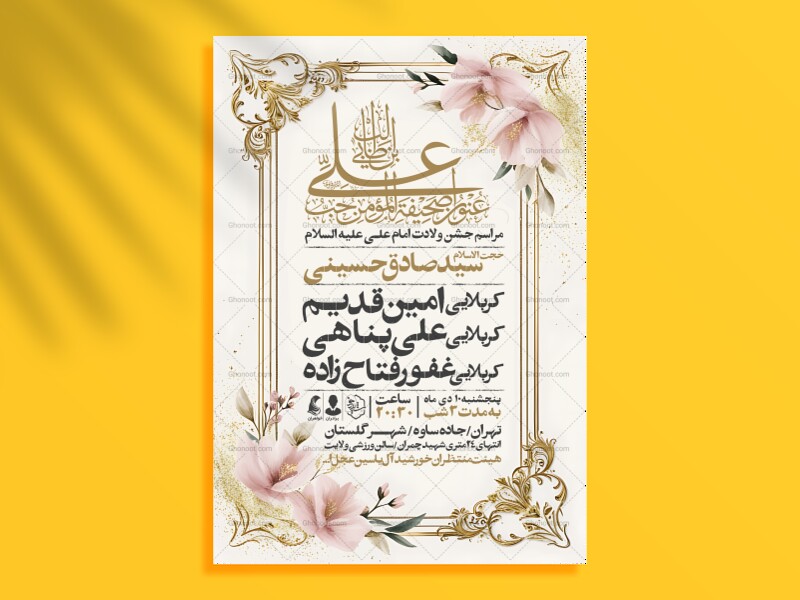 عنوان صحیفة المؤمن حب
علی بن ابی طالب
مراسم جشن ولادت امام علی علیه السلام
حجت الاسلام سید صادق حسینی
کربلایی امین قدیم
کربلایی علی پناهی
کربلایی غفور فتاح زاده
پنجشنبه ۱۰ دی ماه
به مدت ۳ شب
ساعت
۲۰:۳۰
برادران
خواهران
تهران/جاده ساوه/شهر گلستان
انتهای ۲۴ متری شهید چمران/سالن ورزشی ولایت
هیئت منتظران خورشید آل یاسین عجل ا...
Ghonoot.com